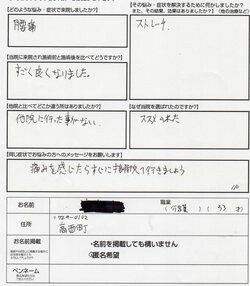 【どのような悩み・症状で来院しましたか】
腰痛
【その悩み・症状を解決するために何かしましたか? また、その結果、効果はありましたか?(他の治療など)】
ストレッチ
【当院に来院され施術前と施術後を比べてどうですか?】
すごく良くなりました。
【他院と比べてどこか違う所はありましたか?】
他院に行った事がない
【なぜ当院を選ばれたのですか?】
ススメられた
【同じ症状でお悩みの方へのメッセージをお願いします】
痛みを感じたらすぐに 接骨院で行きましょう
お名前
職業
(介護) (33才)
住所
〒729-0102
高西町
お名前掲載
・名前を掲載しても構いません
匿名希望
ペンネーム